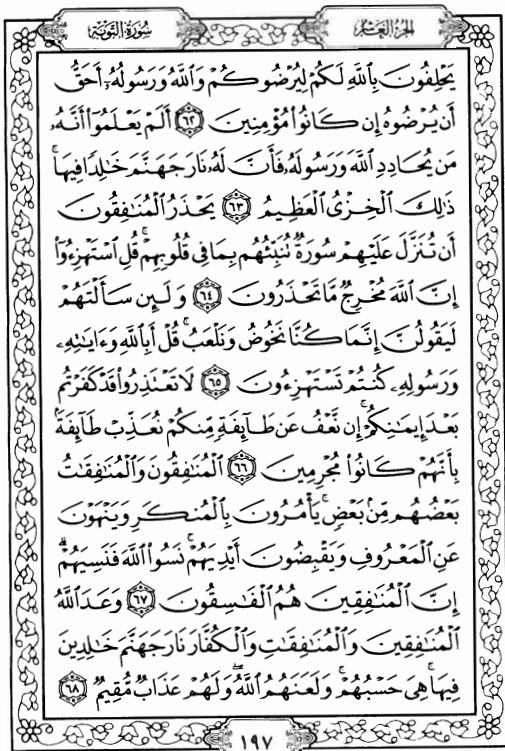 سُورَةُ التَّوْبَةِ
الجُزْءُ العَاشِرُ
يَحْلِفُونَ بِٱللَّهِ لَكُمْ لِيُرْضُوكُمْ وَٱللَّهُ وَرَسُولُهُۥٓ أَحَقُّ
أَن يُرْضُوهُ إِن كَانُوا۟ مُؤْمِنِينَ ٦٢ أَلَمْ يَعْلَمُوٓا۟ أَنَّهُۥ
مَن يُحَادِدِ ٱللَّهَ وَرَسُولَهُۥ فَأَنَّ لَهُۥ نَارَ جَهَنَّمَ خَٰلِدًا فِيهَا ۚ
ذَٰلِكَ ٱلْخِزْىُ ٱلْعَظِيمُ ٦٣ يَحْذَرُ ٱلْمُنَٰفِقُونَ
أَن تُنَزَّلَ عَلَيْهِمْ سُورَةٌ تُنَبِّئُهُم بِمَا فِى قُلُوبِهِمْ ۚ قُلِ ٱسْتَهْزِءُوٓا۟
إِنَّ ٱللَّهَ مُخْرِجٌ مَّا تَحْذَرُونَ ٦٤ وَلَئِن سَأَلْتَهُمْ
لَيَقُولُنَّ إِنَّمَا كُنَّا نَخُوضُ وَنَلْعَبُ ۚ قُلْ أَبِٱللَّهِ وَءَايَٰتِهِۦ
وَرَسُولِهِۦ كُنتُمْ تَسْتَهْزِءُونَ ٦٥ لَا تَعْتَذِرُوا۟ قَدْ كَفَرْتُم
بَعْدَ إِيمَٰنِكُمْ ۚ إِن نَّعْفُ عَن طَآئِفَةٍ مِّنكُمْ نُعَذِّبْ طَآئِفَةًۢ
بِأَنَّهُمْ كَانُوا۟ مُجْرِمِينَ ٦٦ ٱلْمُنَٰفِقُونَ وَٱلْمُنَٰفِقَٰتُ
بَعْضُهُم مِّنۢ بَعْضٍ ۚ يَأْمُرُونَ بِٱلْمُنكَرِ وَيَنْهَوْنَ
عَنِ ٱلْمَعْرُوفِ وَيَقْبِضُونَ أَيْدِيَهُمْ ۚ نَسُوا۟ ٱللَّهَ فَنَسِيَهُمْ ۗ
إِنَّ ٱلْمُنَٰفِقِينَ هُمُ ٱلْفَٰسِقُونَ ٦٧ وَعَدَ ٱللَّهُ
ٱلْمُنَٰفِقِينَ وَٱلْمُنَٰفِقَٰتِ وَٱلْكُفَّارَ نَارَ جَهَنَّمَ خَٰلِدِينَ
فِيهَا ۚ هِىَ حَسْبُهُمْ ۚ وَلَعَنَهُمُ ٱللَّهُ ۖ وَلَهُمْ عَذَابٌ مُّقِيمٌ ٦٨
١٩٧